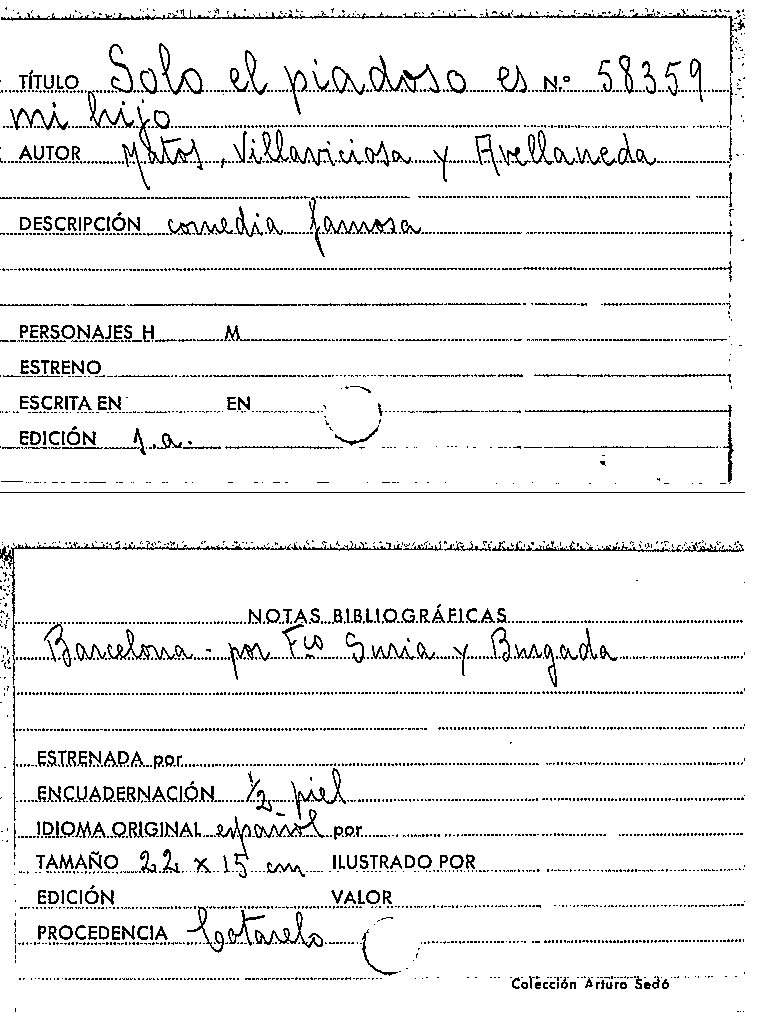 TÍTULO Solo el piadoso es N.º 58359
mi hijo
AUTOR Matos, Villaviciosa y Avellaneda
DESCRIPCIÓN comedia famosa
PERSONAJES H M
ESTRENO
ESCRITA EN EN
EDICIÓN s.a.
NOTAS BIBLIOGRÁFICAS
Barcelona - por Fco Suria y Burgada
ESTRENADA por
ENCUADERNACIÓN 1/2 piel
IDIOMA ORIGINAL español por
TAMAÑO 22 x 15 cm ILUSTRADO POR
EDICIÓN VALOR
PROCEDENCIA Cotarelo
Colección Arturo Sedó